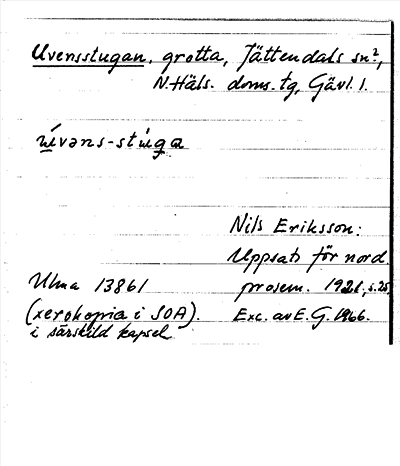 Uvensstugan, grotta, Jättendals sn?,
N.Häls. doms. tg, Gävl. l.
ùvəns-stúga
Nils Eriksson:
Uppsats för nord.
Ulma 13861
prosem. 1921, s.25.
(xerokopia i SOA).
Exc. av E. G. 1966.
i särskild kapsel